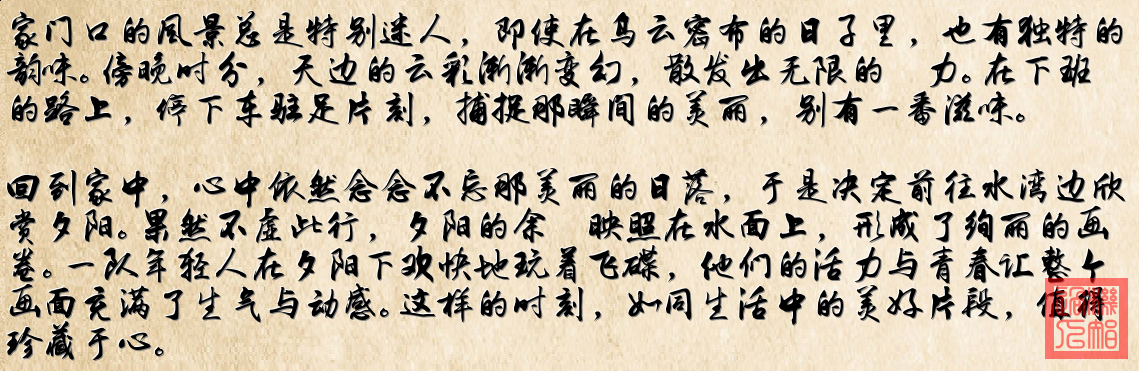 家门口的风景总是特别迷人，即使在乌云密布的日子里，也有独特的
韵味。傍晚时分，天边的云彩渐渐变幻，散发出无限的 力。在下班
的路上，停下车驻足片刻，捕捉那瞬间的美丽，别有一番滋味。
回到家中，心中依然念念不忘那美丽的日落，于是决定前往水湾边欣
赏夕阳。果然不虚此行，夕阳的余 映照在水面上，形成了绚丽的画
卷。一队年轻人在夕阳下欢快地玩着飞碟，他们的活力与青春让整个
画面充满了生气与动感。这样的时刻，如同生活中的美好片段，值得
珍藏于心。